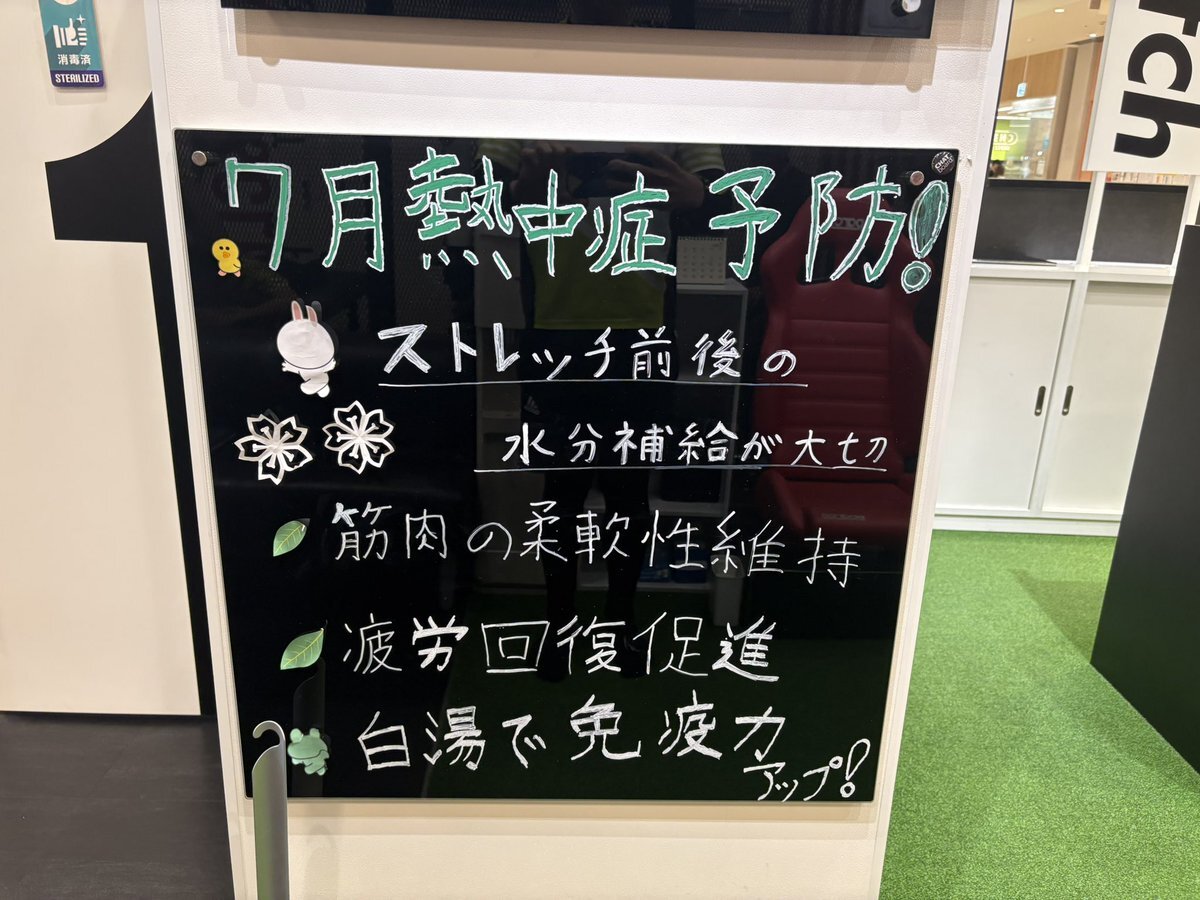 消毒済
STERILIZED
1
rch
7月熱中症予防!
ストレッチ前後の
水分補給が大切
筋肉の柔軟性維持
疲労回復促進
白湯で免疫力
アップ!